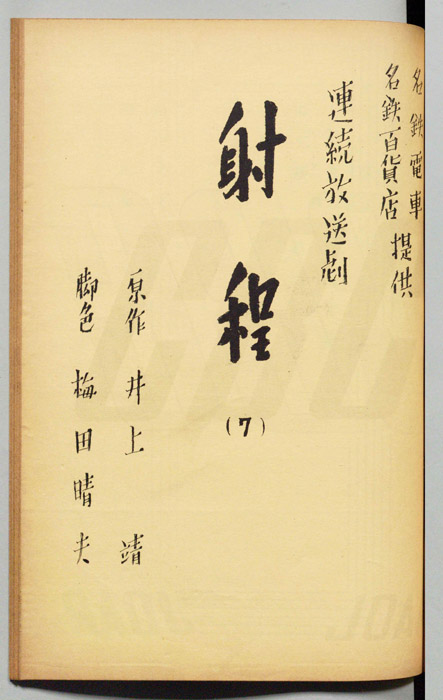 名鉄電車
名鉄百貨店 提供
連続放送劇
射程
(7)
原作 井上 靖
脚色 梅田晴夫